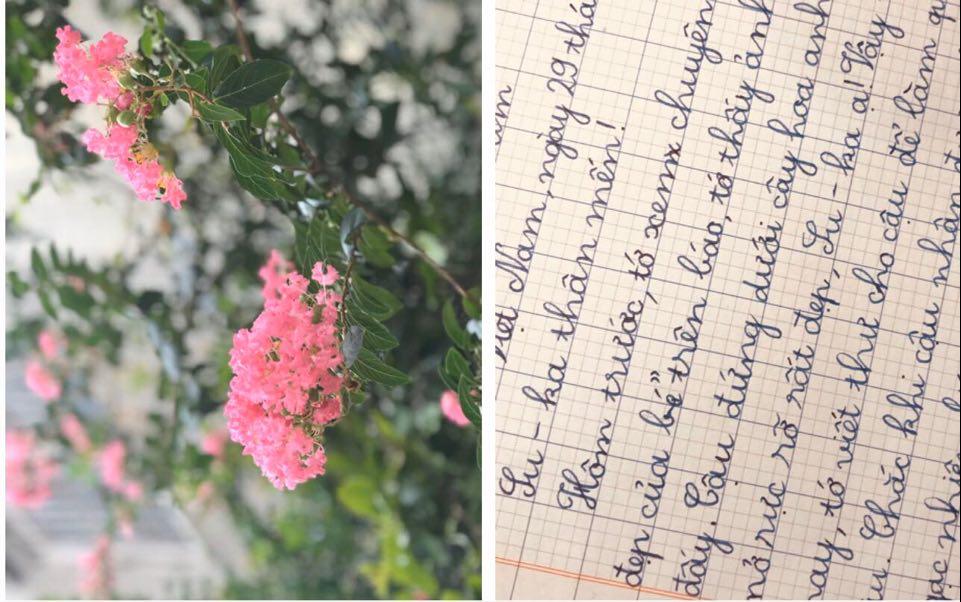 Việt Nam, ngày 29 thá
Su - ka thân mến!
Hôm trước, tớ xem chuyên
đẹp của bé" trên báo, tớ thấy ảnh
đấy. Cậu đứng dưới cây hoa anh
nở rực rỡ rất đẹp, Su - ka ạ! Vậy
nay, tớ viết thư cho cậu để làm
Chắc khi cậu nhận